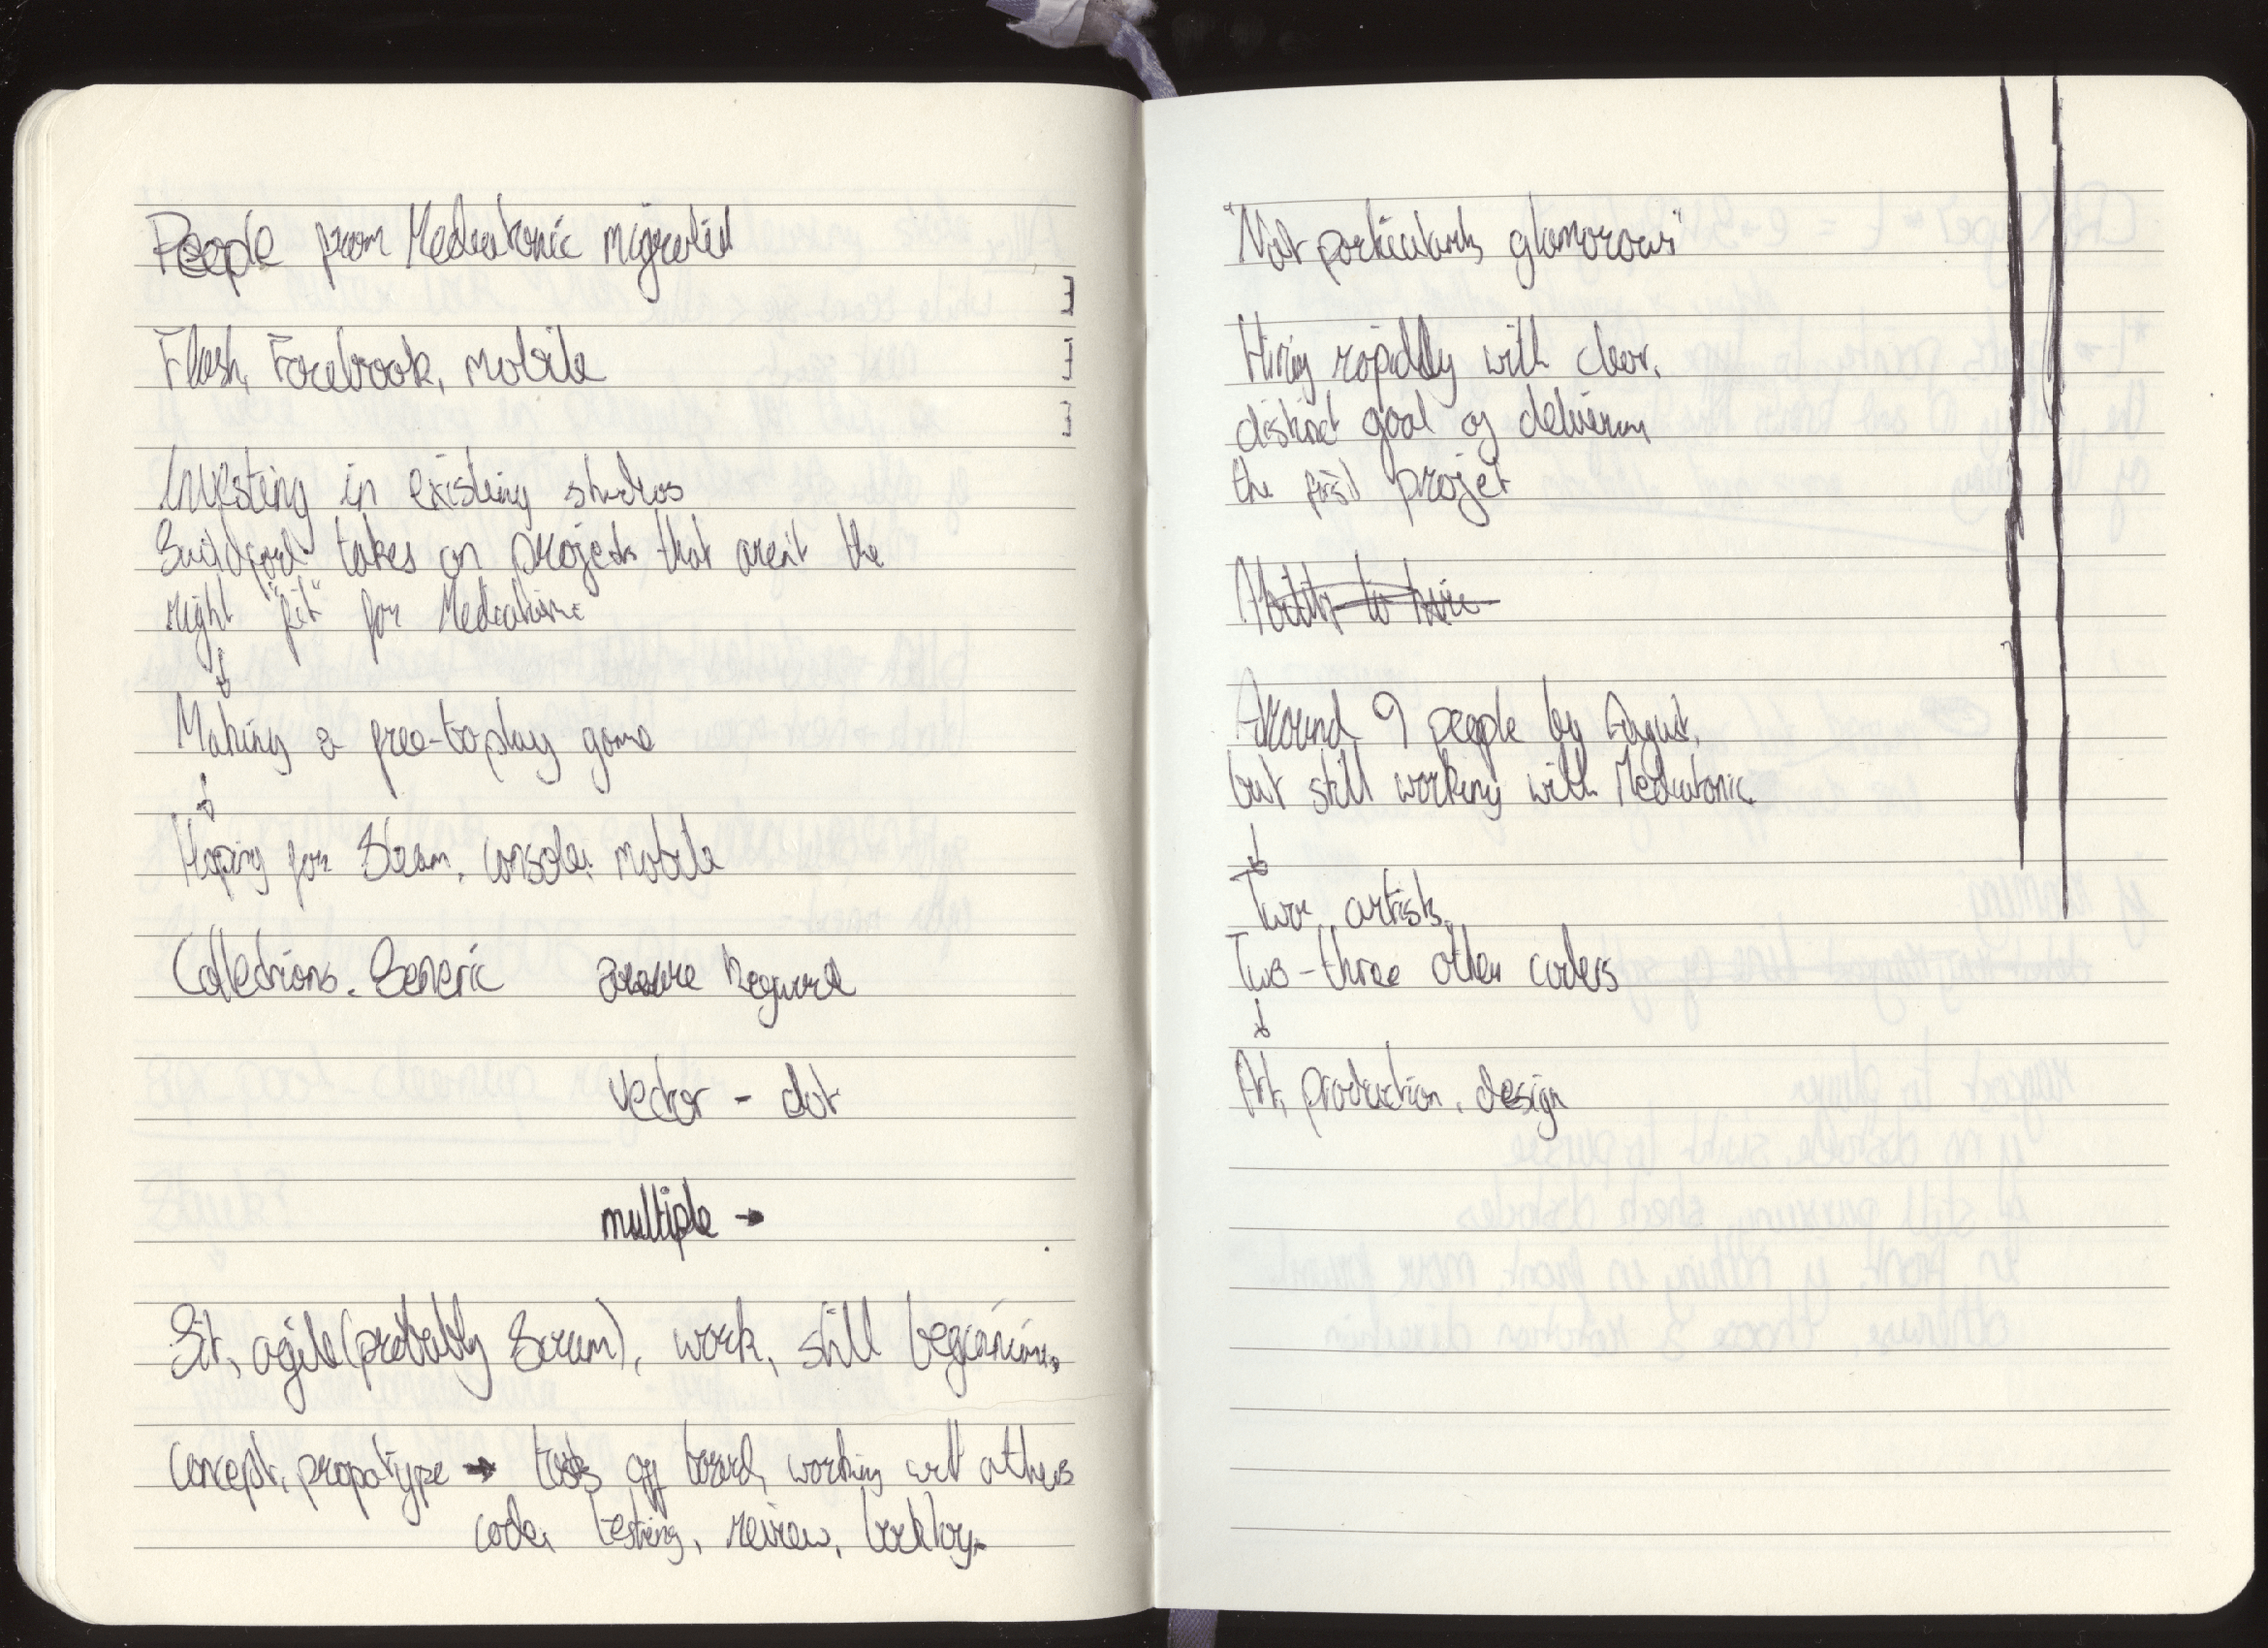 People from Mediatonic migrated
Flash, Facebook, mobile
Investing in existing studios
Guildford takes on projects that aren't the
right "fit" for Mediatonic
↓
Making a free-to-play game
↓
Hoping for Steam, console, mobile
Collections.Generic require
vector - dot
multiple →
Sit, agile (probably Scrum), work, still beginning,
Concept, propotype → tasks off board, working with others
code, testing, review, backlog.
"Not particularly glamorous"
Hiring rapidly with clear,
distinct goal of delivering
the first projet
Ability to hire
Around 9 people by August,
but still working with Mediatonic
↓
Two artists,
Two-three other coders
↓
Art, production, design